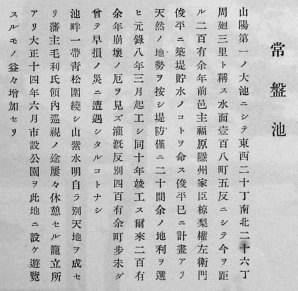 常盤池
山陽第一ノ大池ニシテ東西二十丁南北二十六丁
周廻三里ト稱ス水面壹百八町五反ニシテ今ヲ距
ル二百有余年前邑主福原隱州家臣椋梨權左衛門
俊平ニ築堤貯水ノコトヲ命ス俊平已ニ計畫アリ
天然ノ地勢ヲ按シ堤防僅ニ二十間余ノ地利ヲ選
ヒ元錄八年三月起工シ同十年竣工ス爾來二百有
余年崩壞ノ厄ヲ見ズ灌漑反別四百有余町步未ダ
曾テ旱損ノ災ニ遭遇シタルコトナシ
池畔一帶靑松圍繞シ山紫水明自ラ別天地ヲ成セ
リ藩主毛利氏領內巡視ノ途屢々休憩セル龍立所
アリ大正十四年六月市設公園ヲ此地ニ設ケ遊覽
スルモノ益々增加セリ